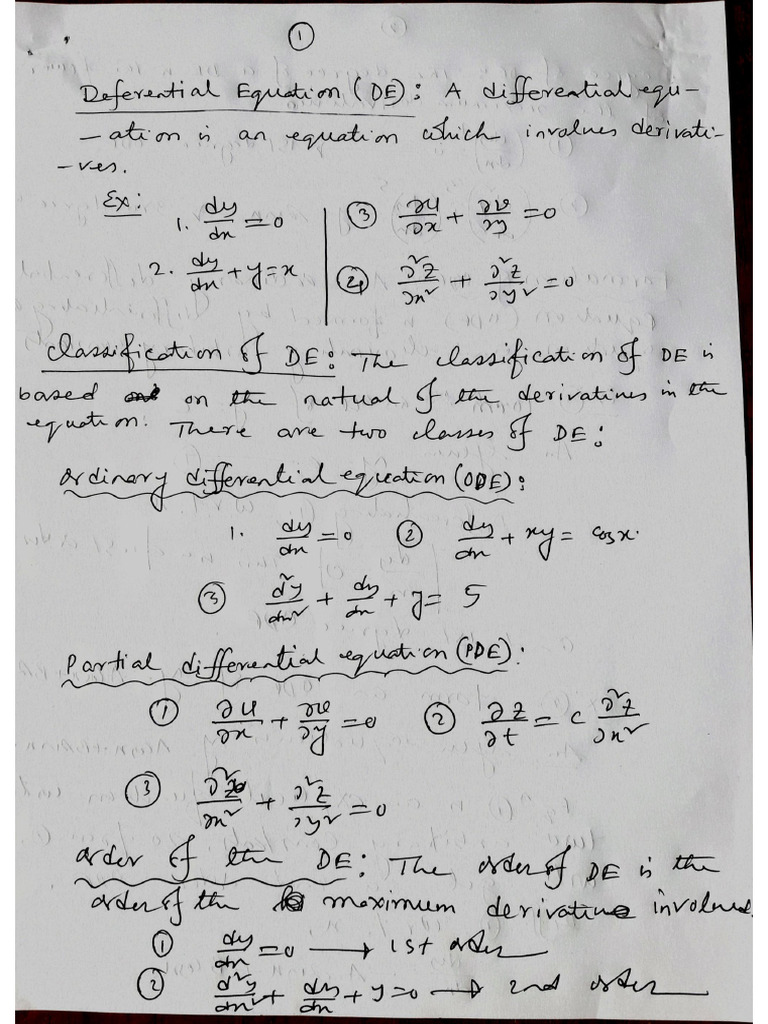 ①
Deferential Equation (DE): A differential equ-
-ation is an equation which involves derivati-
-ves.
Ex:
1. dy/dx = 0
③ ∂u/∂x + ∂v/∂y = 0
2. dy/dx + y = x
④ ∂²z/∂x² + ∂²z/∂y² = 0
Classification of DE: The classification of DE is
based on the natual of the derivatives in the
equation. There are two classes of DE:
ordinary differential equation (ODE):
1. dy/dx = 0 ② dy/dx + xy = cosx.
③ d²y/dx² + dy/dx + y = 5
Partial differential equation (PDE):
① ∂u/∂x + ∂v/∂y = 0 ② ∂z/∂t = c ∂²z/∂x²
③ ∂²z/∂x² + ∂²z/∂y² = 0
order of the DE: The order of DE is the
order of the maximum derivative involved.
① dy/dx = 0 → 1st order
② d²y/dx² + dy/dx + y = 0 → 2nd order